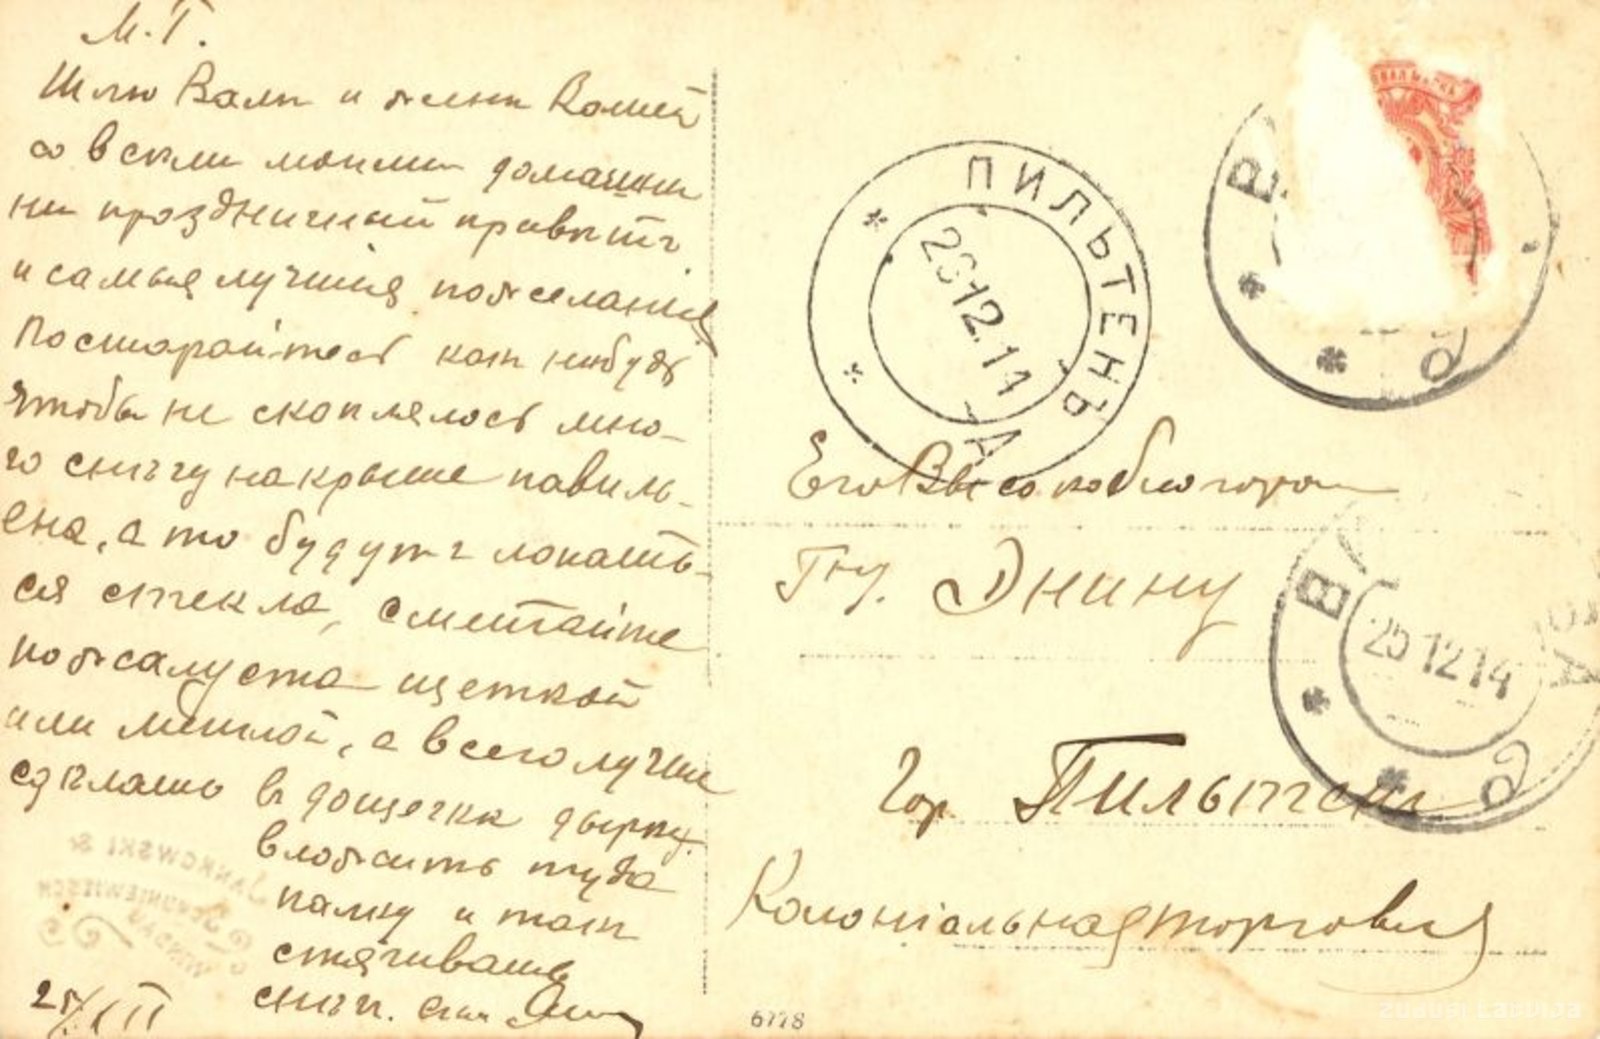 М.Г.
Шлю Вамъ и женѣ Вашей
со всѣми моими домашни
ми праздничный привѣтъ
и самыя лучшія пожеланія
Постарайтесь какъ нибудь
чтобы не скоплялось мно-
го снѣгу на крыше павиль-
она, а то будутъ лопать-
ся стекла, сметайте
пожалуста щеткой
или метлой, а всего лучше
сдѣлать въ дощечкѣ дырку
вложить туда
палку и такъ
стягивать
снѣгъ.
25/XII
ПИЛЬТЕНЪ
12.14
Его Высокоблагород
Гну. Днину
Гор. Пильтен
Колоніальная торговля
25 12 14
JANKOWSKI &
WINDAU
6778
zudusi Latvija